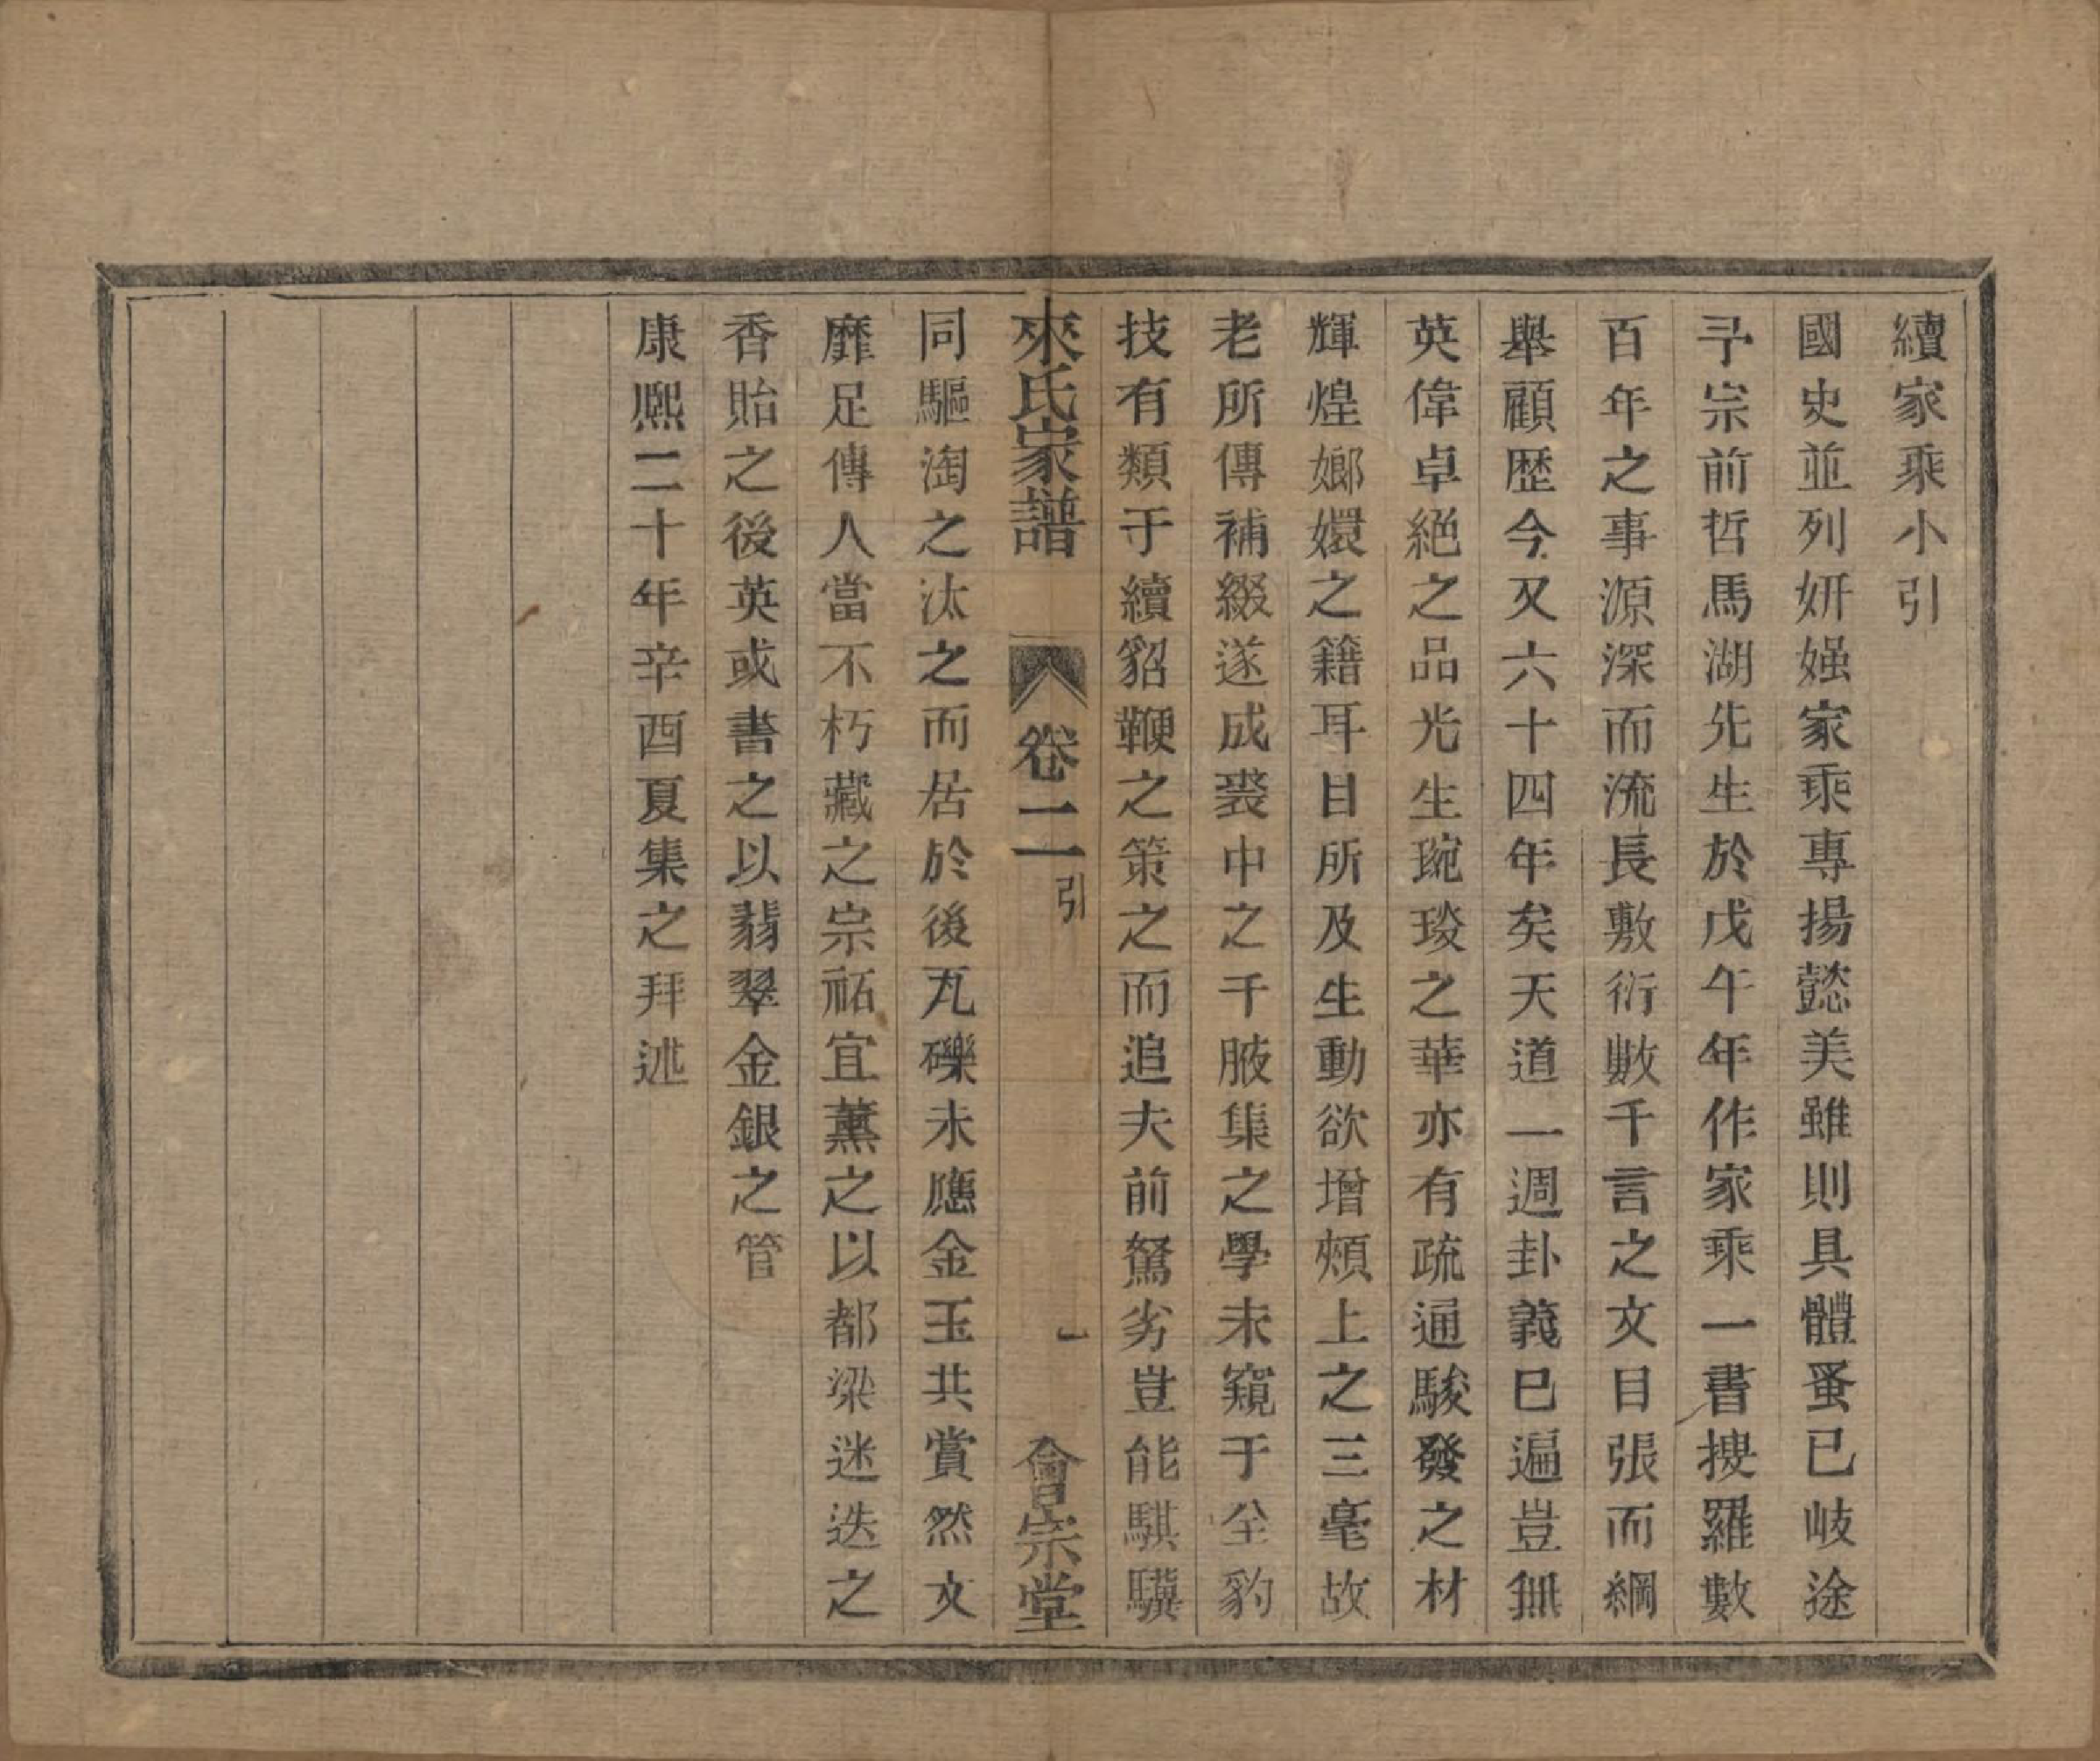 續家乘小引
國史並列妍媸家乘專揚懿美雖則具體蚤已岐途
予宗前哲馬湖先生於戊午年作家乘一書搜羅數
百年之事源深而流長敷衍數千言之文目張而綱
舉顧歴今又六十四年矣天道一週卦義已遍豈無
英偉卓絕之品光生琬琰之華亦有疏通駿發之材
輝煌嫏嬛之籍耳目所及生動欲增頰上之三毫故
老所傳補綴遂成裘中之千腋集之學未窺于全豹
技有類于續貂鞭之策之而追夫前駑劣豈能騏驥
來氏家譜 卷二 引 一 會宗堂
同驅淘之汰之而居於後瓦礫未應金玉共賞然文
靡足傳人當不朽藏之宗祏宜薰之以都梁迷迭之
香貽之後英或書之以翡翠金銀之管
康熙二十年辛酉夏集之拜述